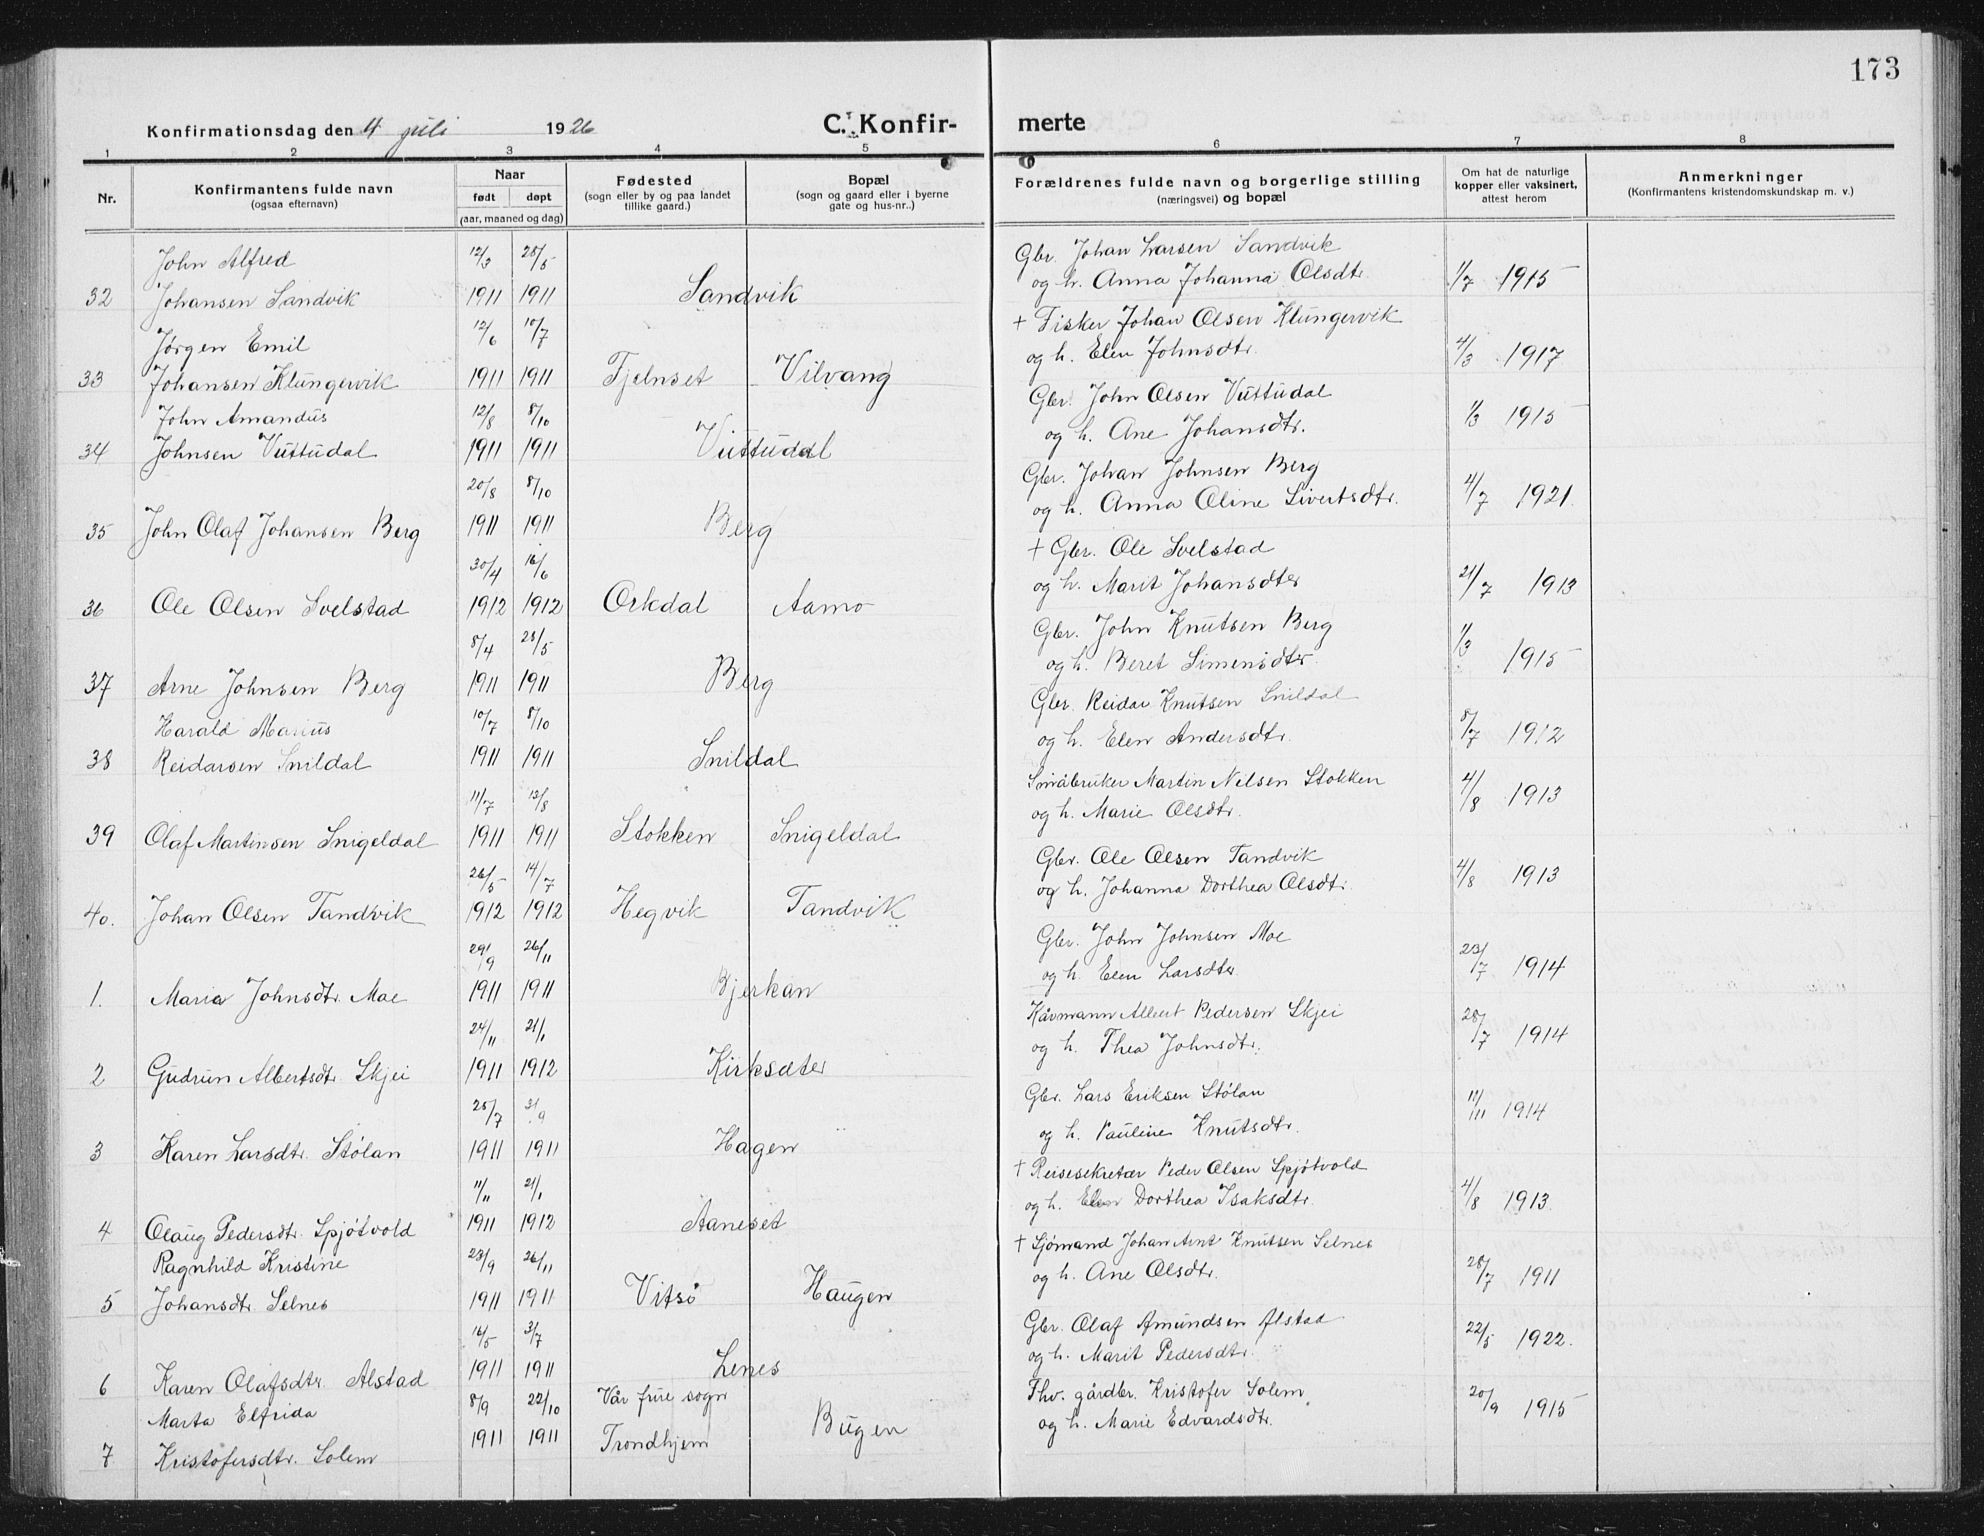 173
Konfirmationsdag den 4 juli 1926
C. Konfir-
merte
1 2 3 4 5 6 7 8
Nr.
Konfirmantens fulde navn
(ogsaa efternavn)
Naar
født døpt
(aar, maaned og dag)
Fødested
(sogn eller by og paa landet
tillike gaard.)
Bopæl
(sogn og gaard eller i byerne
gate og hus-nr..)
Forældrenes fulde navn og borgerlige stilling
(næringsvei) og bopæl
Om hat de naturlige
kopper eller vaksinert,
attest herom
Anmerkninger
(Konfirmantens kristendomskundskap m. v.)
John Alfred 12/3 28/5 Gbr. Johan Larsen Sandvik
32 Johansen Sandvik 1911 1911 Sandvik og h. Anna Johanna Olsdtr. 1/7 1915
Jørgen Emil 12/6 10/7 + Fisker Johan Olsen Klungervik
33 Johansen Klungervik 1911 1911 Tjelnset Vilvang og h. Elen Johnsdtr. 4/3 1917
John Amandus 12/8 8/10 Gbr. John Olsen Vuttudal
34 Johnsen Vuttudal 1911 1911 Vuttudal og h. Ane Johansdtr. 1/3 1915
20/8 8/10 Gbr. Johan Johnsen Berg
35 John Olaf Johansen Berg 1911 1911 Berg og h. Anna Oline Sivertsdtr. 4/7 1921.
30/4 16/6 + Gbr. Ole Svelstad
36 Ole Olsen Svelstad 1912 1912 Orkdal Aamo og h. Marit Johansdter 21/7 1913
8/4 28/5 Gbr. John Knutsen Berg
37 Arne Johnsen Berg 1911 1911 Berg og h. Beret Simensdtr. 1/3 1915
Harald Marius 10/7 8/10 Gbr. Reidar Knutsen Snildal
38 Reidarsen Snildal 1911 1911 Snildal og h. Elen Andersdtr. 8/7 1912
11/7 13/8 Småbruker Martin Nilsen Stokken
39 Olaf Martinsen Snigeldal 1911 1911 Stokken Snigeldal og h. Marie Olsdtr. 4/8 1913
26/5 14/7 Gbr. Ole Olsen Tandvik
40. Johan Olsen Tandvik 1912 1912 Hegvik Tandvik og h. Johanna Dorthea Olsdtr. 4/8 1913
29/9 26/11 Gbr. John Johnsen Moe
1. Maria Johnsdtr. Moe 1911 1911 Bjerkan og h. Elen Larsdter 23/7 1914
24/11 21/1 Håvmann Albert Pedersen Skjei
2 Gudrun Albertsdtr. Skjei 1911 1912 Kirksæter og h. Thea Johnsdtr. 28/7 1914
25/7 3/9 Gbr. Lars Eriksen Stølan
3 Karen Larsdtr. Stølan 1911 1911 Hagen og h. Pauline Knutsdtr. 1914
11/11 21/1 + Reisesekretær Peder Olsen Spjøtvold
4 Olaug Pedersdtr. Spjøtvold 1911 1912 Aaneset og h. Elen Dorthea Isaksdtr. 4/8 1913.
Ragnhild Kristine 23/9 26/11 + Sjømand Johan Arnt Knutsen Selnes
5 Johansdtr. Selnes 1911 1911 Vitsø Haugen og h. Ane Olsdtr. 28/7 1911
16/5 3/7 Gbr. Olaf Amundsen Alstad
6 Karen Olafsdtr. Alstad 1911 1911 Lenes og h. Marit Pedersdtr. 22/5 1922.
Marta Elfrida 8/9 22/10 Vår frue sogn Fhv. gårdbr. Kristofer Solem
7 Kristofersdtr. Solem 1911 1911 Trondhjem Bugen og h. Marie Edvardsdtr. 20/9 1915